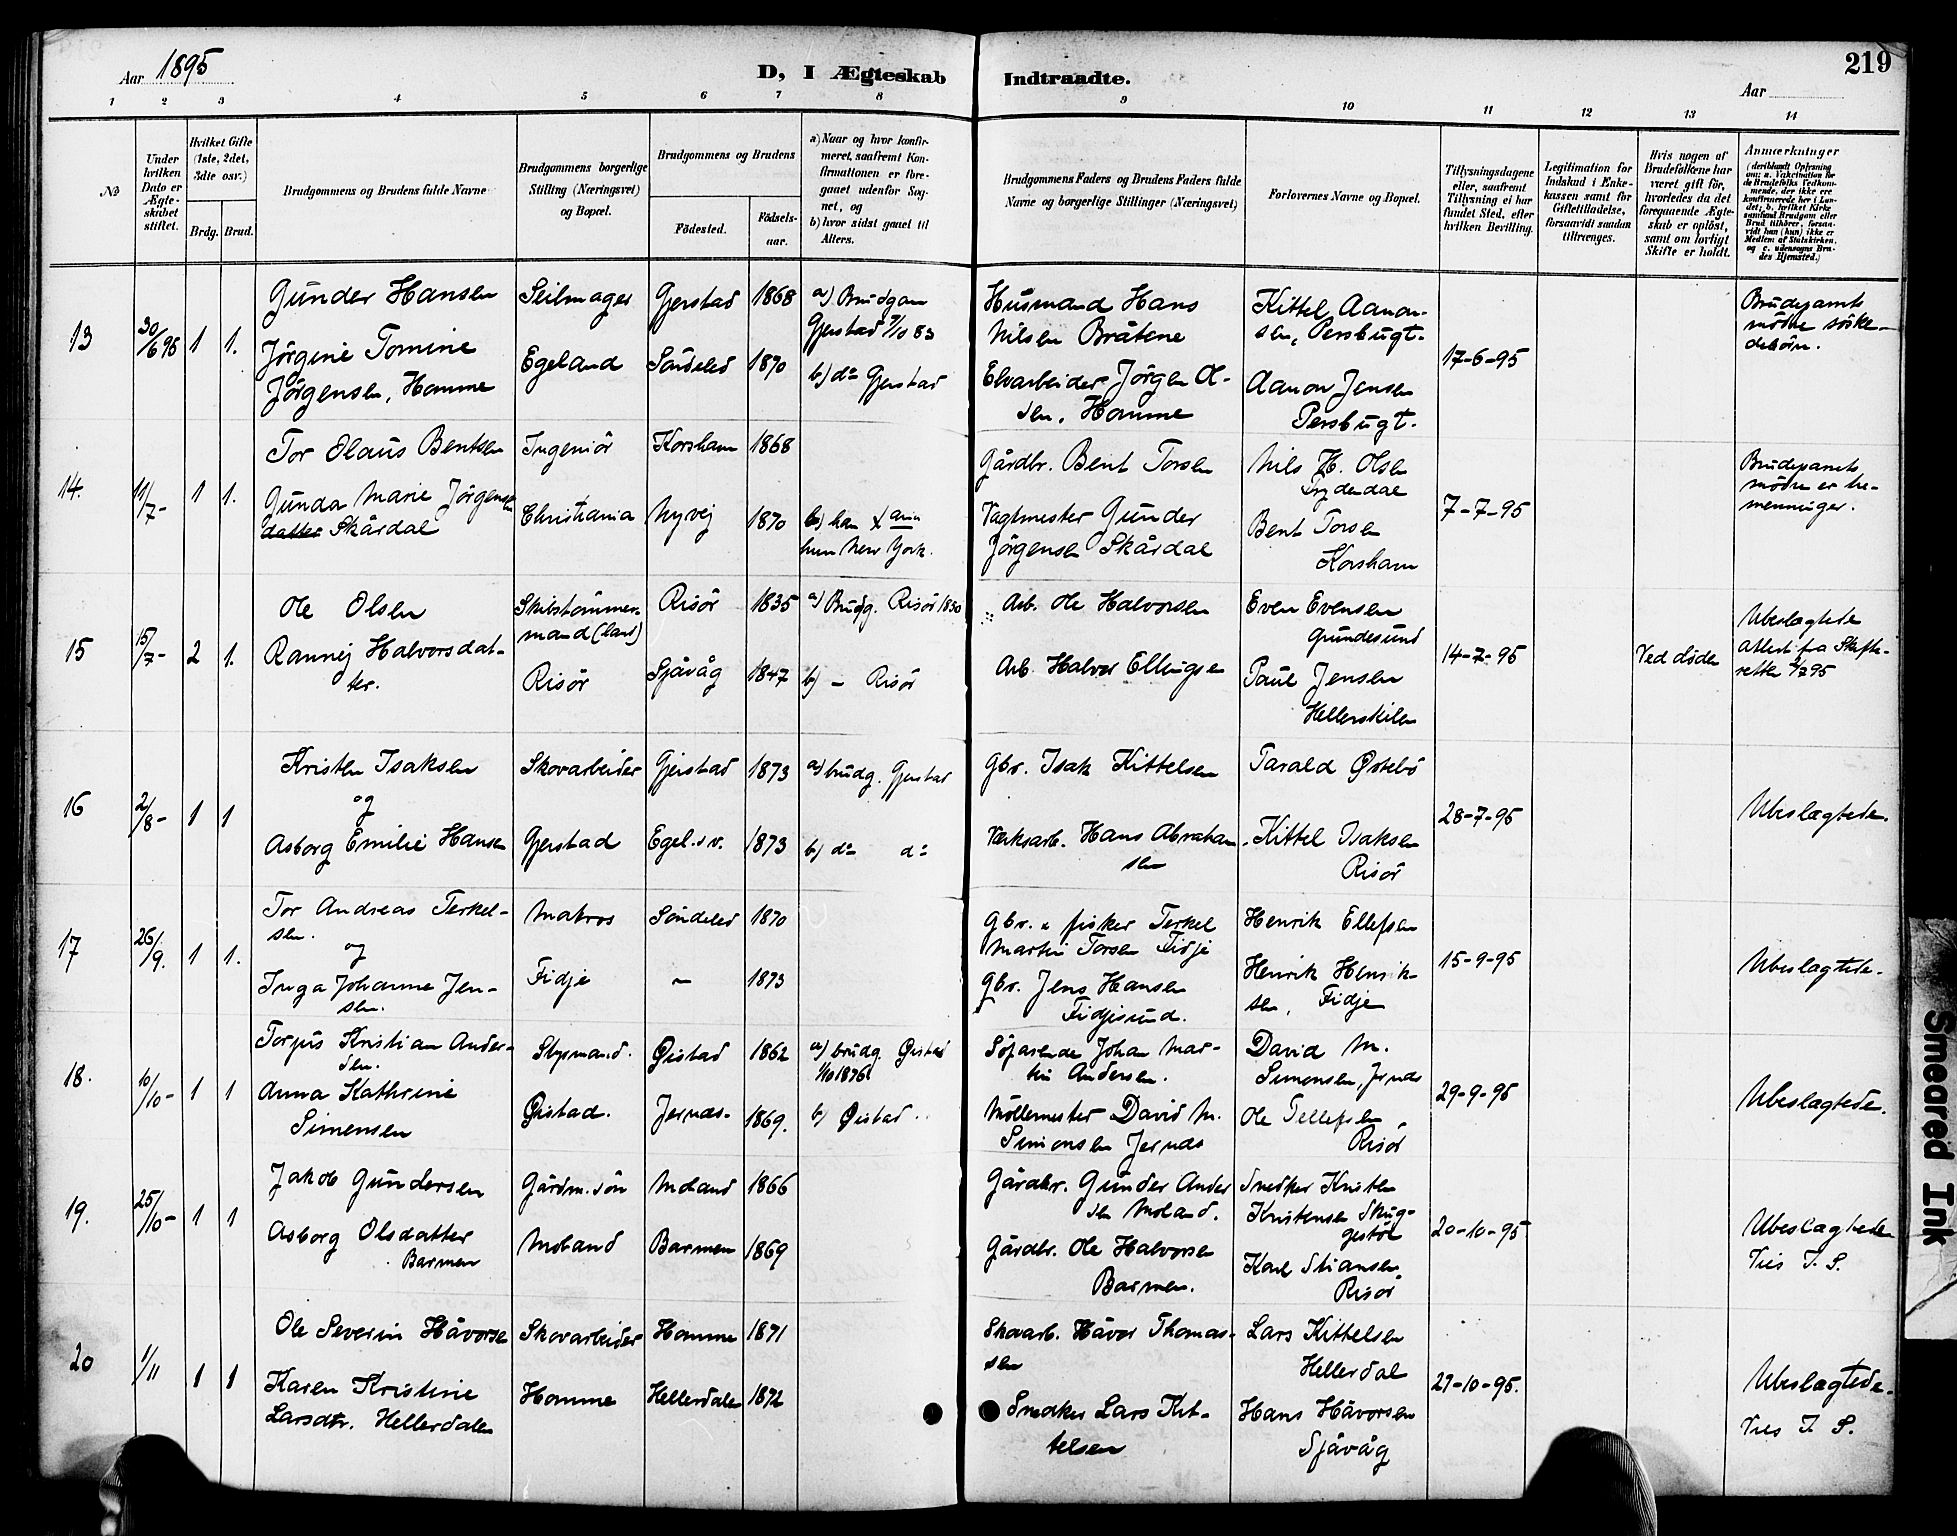 Aar 1895
D, I Ægteskab Indtraadte.
219
Aar
1 2 3 4 5 6 7 8 9 10 11 12 13 14
No
Under hvilken Dato er Ægteskabet stiftet.
Hvilket Gifte (1ste, 2det, 3die osv.)
Brdg. Brud.
Brudgommens og Brudens fulde Navne
Brudgommens borgerlige Stilling (Næringsvei) og Bopæl.
Brudgommens og Brudens
Fødested.
Fødselsaar.
a) Naar og hvor konfirmeret, saafremt Konfirmationen er foregaaet udenfor Sognet, og
b) hvor sidst gaaet til Alters.
Brudgommens Faders og Brudens Faders fulde Navne og borgerlige Stillinger (Næringsvei)
Forlovernes Navne og Bopæl.
Tillysningsdagene eller, saafremt Tillysning ei har fundet Sted, efter hvilken Bevilling.
Legitimation for Indskud i Enkekassen samt for Giftetilladelse, forsaavidt saadan tiltrænges.
Hvis nogen af Brudefolkene har været gift før, hvorledes da det foregaaende Ægteskab er opløst, samt om lovligt Skifte er holdt.
Anmærkninger
(deriblandt Oplysning om: a. Vakcination for de Brudefolks Vedkommende, der ikke ere konfirmerede her i Landet; b. hvilket Kirkesamfund Brudgom eller Brud tilhører, forsaavidt han (hun) ikke er Medlem af Statskirken, og c. udensogns Brudes Hjemsted.)
13 30/6 95 1 1.
Gunder Hansen
Jörgine Tomine
Jörgensen, Homme
Seilmager
Egeland
Gjerstad 1868
Söndeled 1870
a) Brudgom
Gjerstad 7/10 83
b) do Gjerstad
Husmand Hans
Nilsen Bråtene
Elvarbeider Jörgen Ol-
sen, Homme
Kittel Aanon-
sen, Persbugt.
Aanon Jensen
Persbugt.
17-6-95
Brudeparrets
mödre söske-
debörn.
14. 11/7- 1 1.
Tor Olaus Bentsen
Gunda Marie Jörgensen
datter Skårdal
Ingeniör
Christiania
Korsham 1868
Nyvej 1870
b) han Xania
hun New York.
Gårdbr. Bent Torsen
Vagtmester Gunder
Jörgensen Skårdal
Nils H. Olsen
Bent Torsen
Korsham
7-7-95
Brudeparrets
mödre er tre-
menninger.
15 15/7- 2 1.
Ole Olsen
Rannej Halvorsdat-
ter.
Skibstömmer-
mand (Enk)
Risör
Risör 1835
Sjåvåg 1847
a) Brudg. Risör 1850
b) - Risör
Arb. Ole Halvorsen
Arb. Halvor Ellingsen
Even Evensen
Gundesund
Paul Jensen
Hellerskilen
14-7-95
Ved döden
Ubeslægtede
Attest fra Skifte-
retten 2/7 95
16 2/8- 1 1
Kristen Isaksen
og
Asborg Emilie Hansen
Skovarbeider
Gjerstad
Gjerstad 1873
Egel.sv. 1873
a) brudg. Gjerstad
b) do do
Gbr. Isak Kittelsen
Værksarb. Hans Abraham-
sen
Tarald Østebö
Kittel Isaksen
Risör
28-7-95
Ubeslægtede.
17 26/9. 1 1.
Tor Andreas Terkel-
sen.
og
Inga Johanne Jen-
sen.
Matros
Fidje
Söndeled 1870
- 1873
Gbr. & fisker Terkel
Martin Torsen Fidje
Gbr. Jens Hansen
Fidjesund.
Henrik Ellefsen
Henrik Henrik-
sen, Fidje
15-9-95
Ubeslægtede.
18. 10/10- 1 1
Torjus Kristian Ander-
sen.
Anna Kathrine
Simensen
Styrmand.
Øistad.
Øistad 1862
Jernæs- 1869.
a) brudg. Øistad
1/10 1876
b) Øistad.
Söfarende Johan Mar-
tin Andersen.
Möllemester David M.
Simonsen Jernæs
David M.
Simensen, Jernæs
Ole Tellefsen,
Risör
29-9-95
Ubeslægtede.
19. 25/10- 1 1
Jakob Gundersen
Asborg Olsdatter
Barmen
Gårdm.sön
Moland
Moland 1866
Barmen 1869
Gårdbr. Gunder Ander
sen Moland.
Gårdbr. Ole Halvorsen
Barmen.
Snedker Kristen
Kristensen Skug-
gestöl
Karl Stiansen,
Risör
20-10-95
Ubeslægtede
Vies I. S.
20 1/11 1 1
Ole Severin Håvorsen
Karen Kristine
Larsdtr. Hellerdalen
Skovarbeider
Homme
Homme 1871
Hellerdalen 1872
Skovarb. Håvor Thomas-
sen
Snedker Lars Kit-
telsen
Lars Kittelsen
Hellerdal
Hans Håvorsen
Sjåvåg
27-10-95.
Ubeslægtede.
Vies I. S.
Smeared Ink